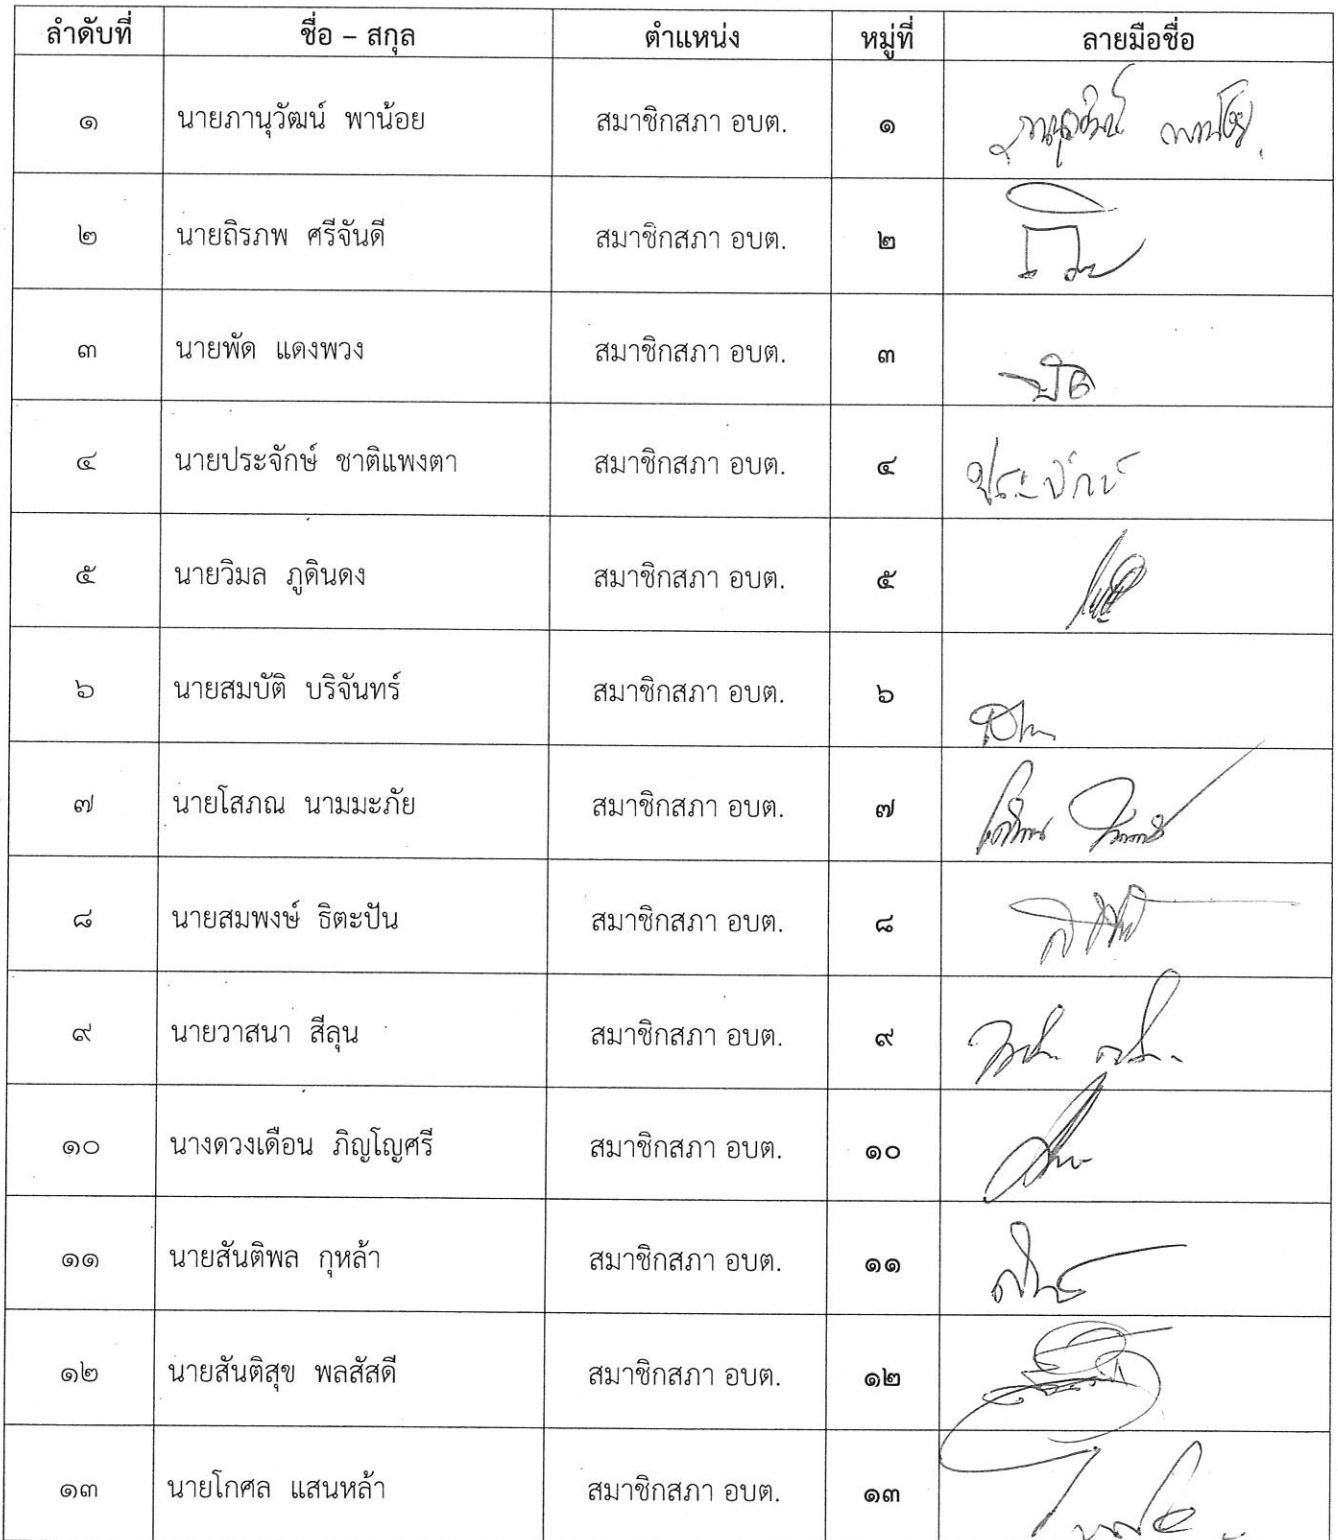 ลำดับที่ ชื่อ – สกุล ตำแหน่ง หมู่ที่ ลายมือชื่อ
๑ นายภานุวัฒน์ พาน้อย สมาชิกสภา อบต. ๑ ภานุวัฒน์ พาน้อย
๒ นายถิรภพ ศรีจันดี สมาชิกสภา อบต. ๒
๓ นายพัด แดงพวง สมาชิกสภา อบต. ๓
๔ นายประจักษ์ ชาติแพงตา สมาชิกสภา อบต. ๔ ประจักษ์
๕ นายวิมล ภูดินดง สมาชิกสภา อบต. ๕
๖ นายสมบัติ บริจันทร์ สมาชิกสภา อบต. ๖
๗ นายโสภณ นามมะภัย สมาชิกสภา อบต. ๗
๘ นายสมพงษ์ ธิตะปัน สมาชิกสภา อบต. ๘
๙ นายวาสนา สีลุน สมาชิกสภา อบต. ๙
๑๐ นางดวงเดือน ภิญโญศรี สมาชิกสภา อบต. ๑๐
๑๑ นายสันติพล กุหล้า สมาชิกสภา อบต. ๑๑
๑๒ นายสันติสุข พลสัสดี สมาชิกสภา อบต. ๑๒
๑๓ นายโกศล แสนหล้า สมาชิกสภา อบต. ๑๓